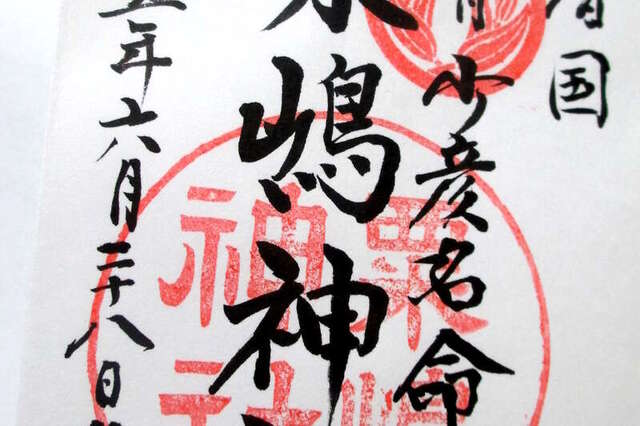 国
少彦名命
嶋神
五年六月二十八日
粟嶋
神社